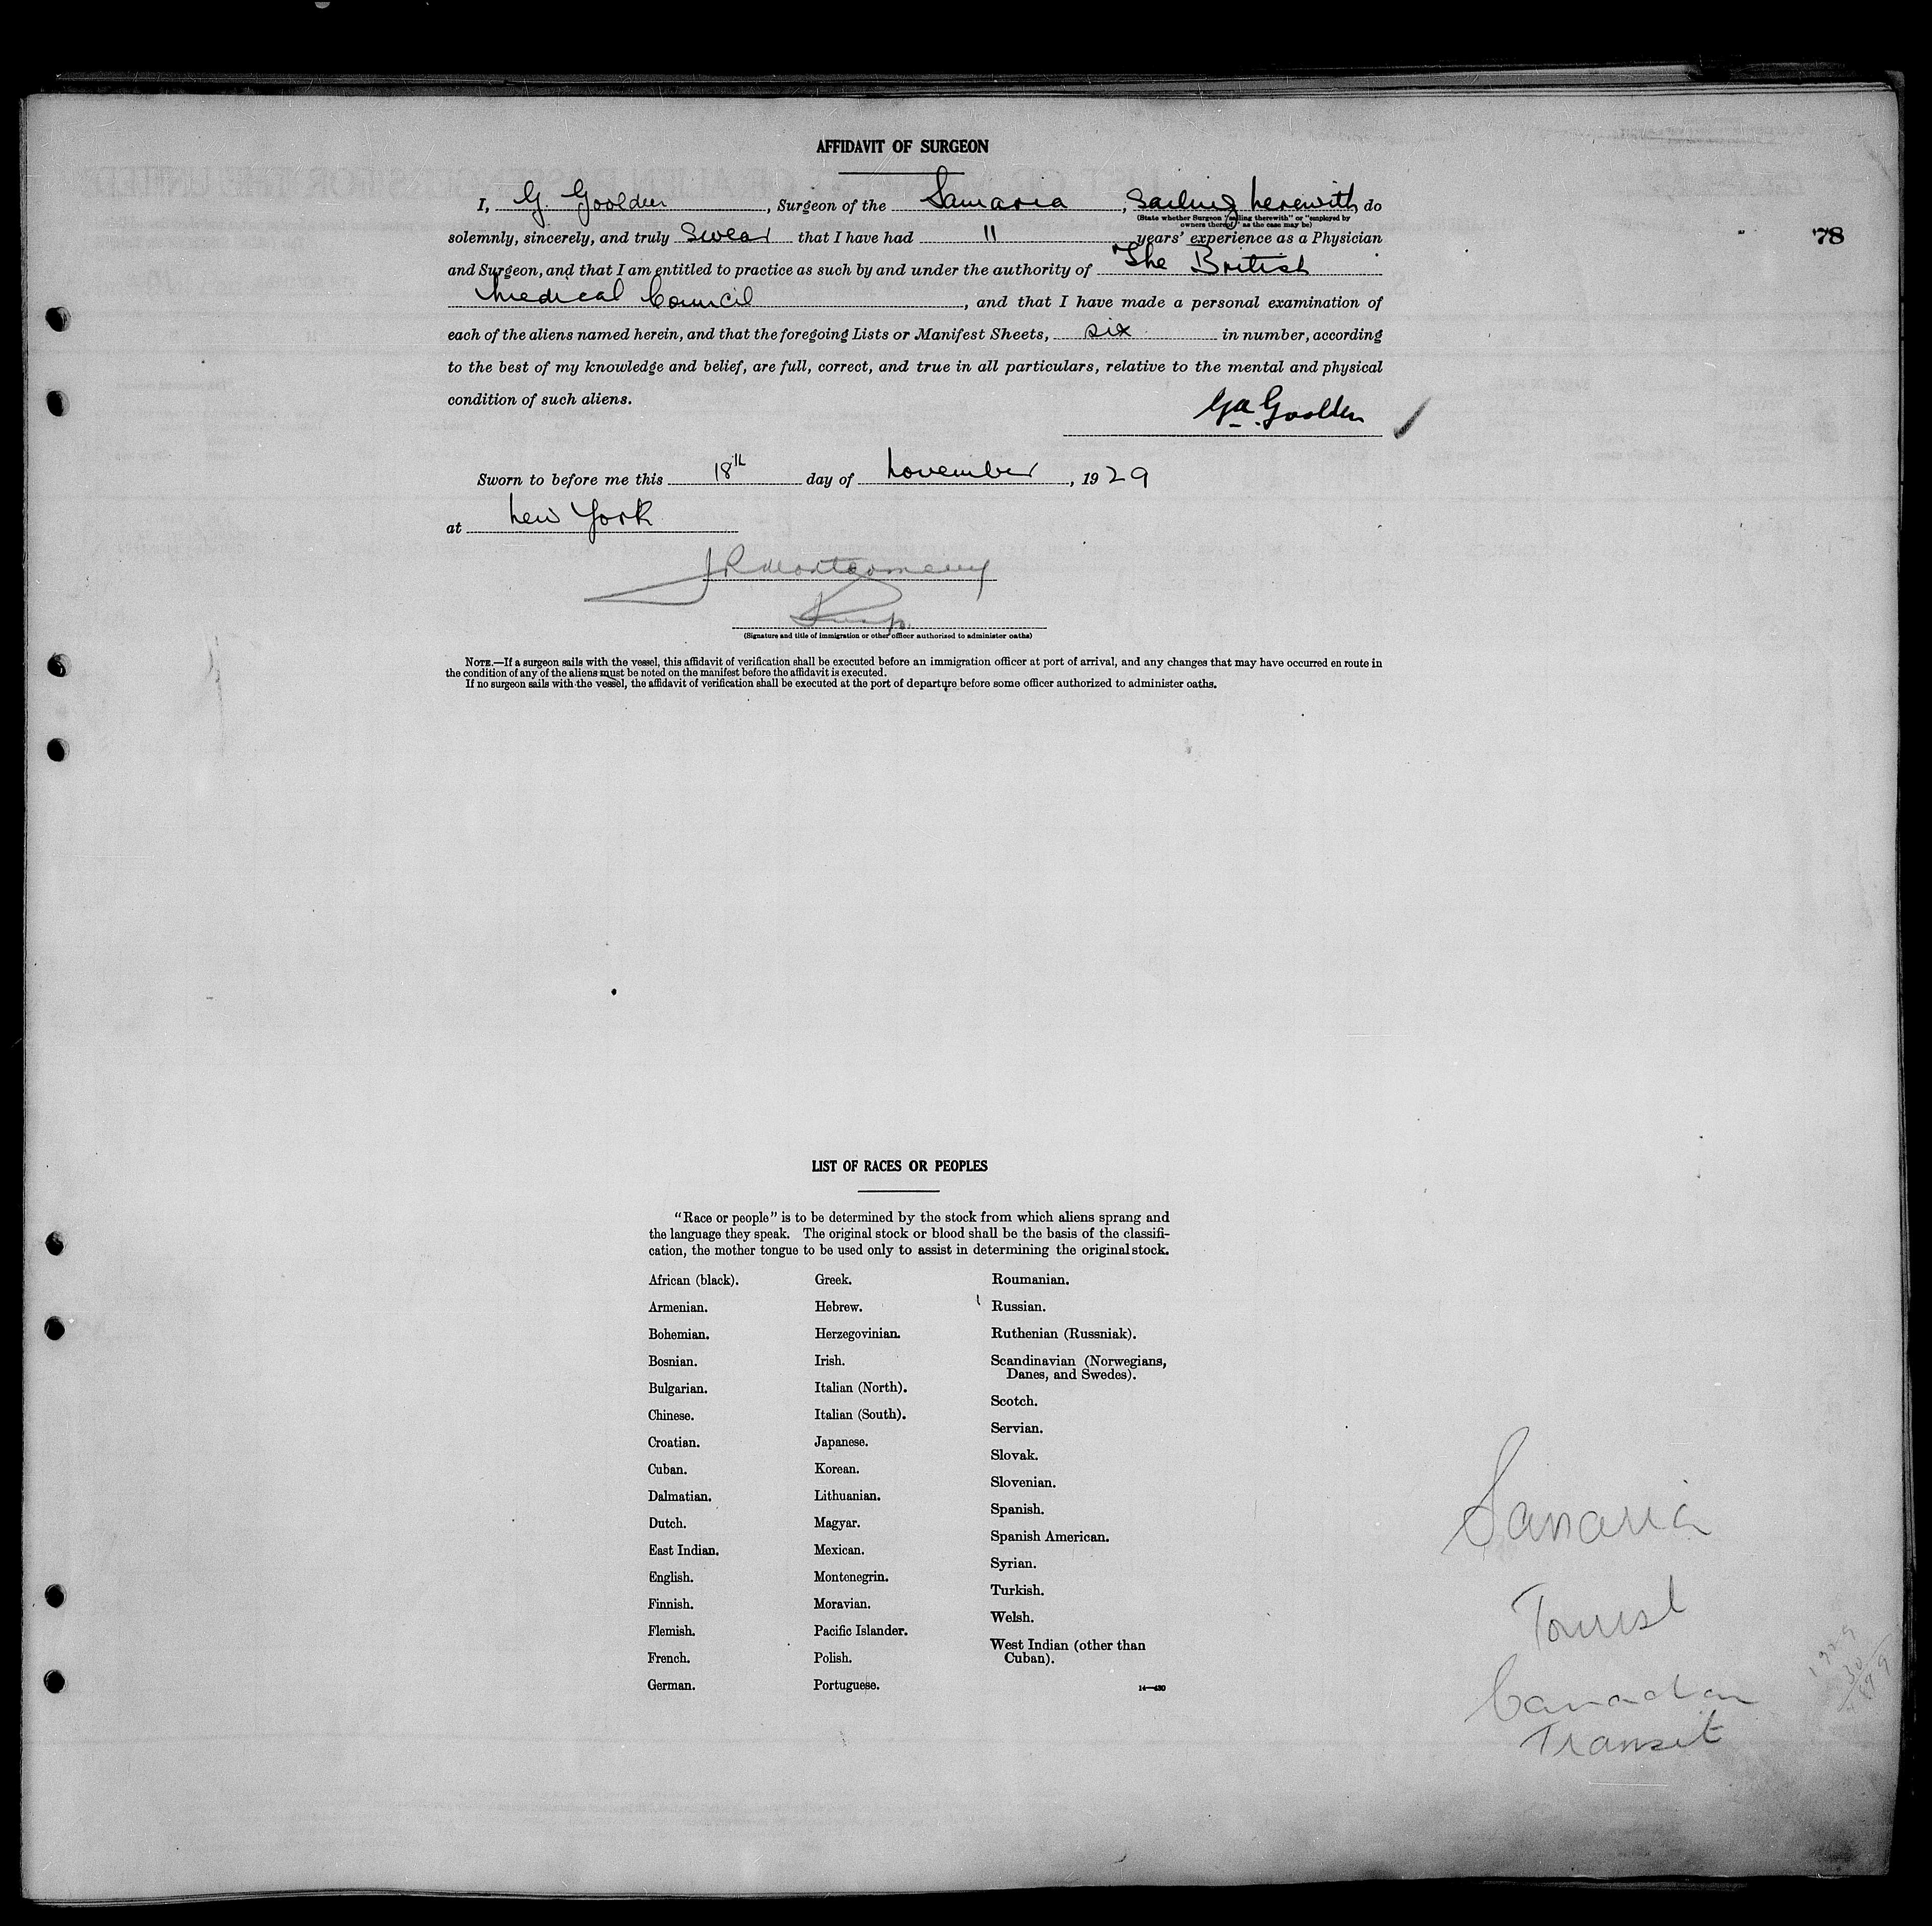 AFFIDAVIT OF SURGEON
I, G. Goolden, Surgeon of the Samaria, Sailing herewith, do
(State whether Surgeon "sailing therewith" or "employed by
owners thereof," as the case may be)
solemnly, sincerely, and truly swear that I have had 11 years' experience as a Physician
78
and Surgeon, and that I am entitled to practice as such by and under the authority of The British
Medical Council, and that I have made a personal examination of
each of the aliens named herein, and that the foregoing Lists or Manifest Sheets, six in number, according
to the best of my knowledge and belief, are full, correct, and true in all particulars, relative to the mental and physical
condition of such aliens.
Ga. Goolden
Sworn to before me this 18th day of November, 1929
at New York
JR Montgomery
Insp.
(Signature and title of immigration or other officer authorized to administer oaths)
NOTE.—If a surgeon sails with the vessel, this affidavit of verification shall be executed before an immigration officer at port of arrival, and any changes that may have occurred en route in
the condition of any of the aliens must be noted on the manifest before the affidavit is executed.
If no surgeon sails with the vessel, the affidavit of verification shall be executed at the port of departure before some officer authorized to administer oaths.
LIST OF RACES OR PEOPLES
"Race or people" is to be determined by the stock from which aliens sprang and
the language they speak. The original stock or blood shall be the basis of the classifi-
cation, the mother tongue to be used only to assist in determining the original stock.
African (black).
Armenian.
Bohemian.
Bosnian.
Bulgarian.
Chinese.
Croatian.
Cuban.
Dalmatian.
Dutch.
East Indian.
English.
Finnish.
Flemish.
French.
German.
Greek.
Hebrew.
Herzegovinian.
Irish.
Italian (North).
Italian (South).
Japanese.
Korean.
Lithuanian.
Magyar.
Mexican.
Montenegrin.
Moravian.
Pacific Islander.
Polish.
Portuguese.
Roumanian.
Russian.
Ruthenian (Russniak).
Scandinavian (Norwegians,
Danes, and Swedes).
Scotch.
Servian.
Slovak.
Slovenian.
Spanish.
Spanish American.
Syrian.
Turkish.
Welsh.
West Indian (other than
Cuban).
14—430
Samaria
Tourist
Canadian
Transit
1929
30